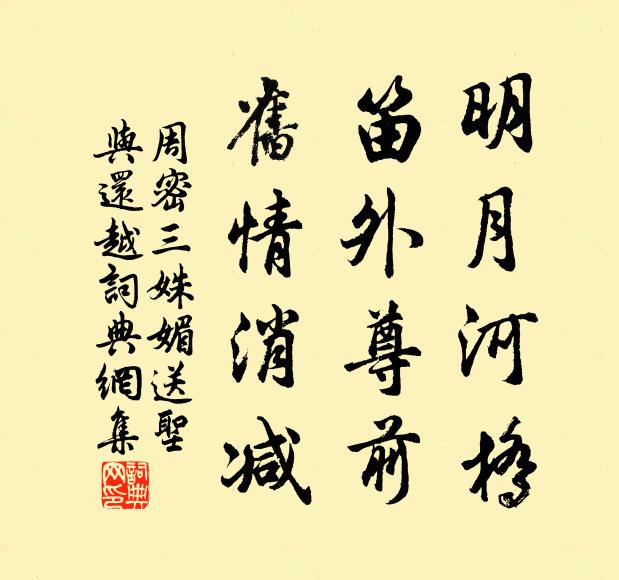 明月河橋
笛外尊前
舊情消減
周密三姝媚送聖
與還越詞典網集
詞典网印